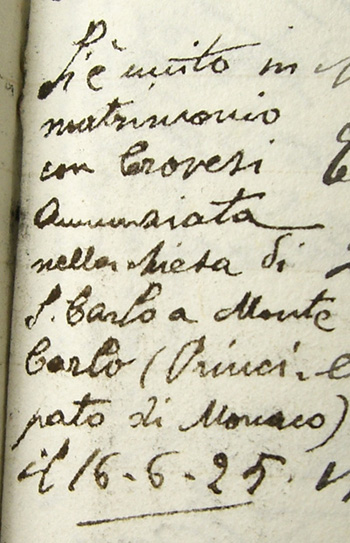 Si è unito in
matrimonio
con Crovesi
Annunziata
nella chiesa di
S. Carlo a Monte
Carlo (Princi-
pato di Monaco)
il 16-6-25